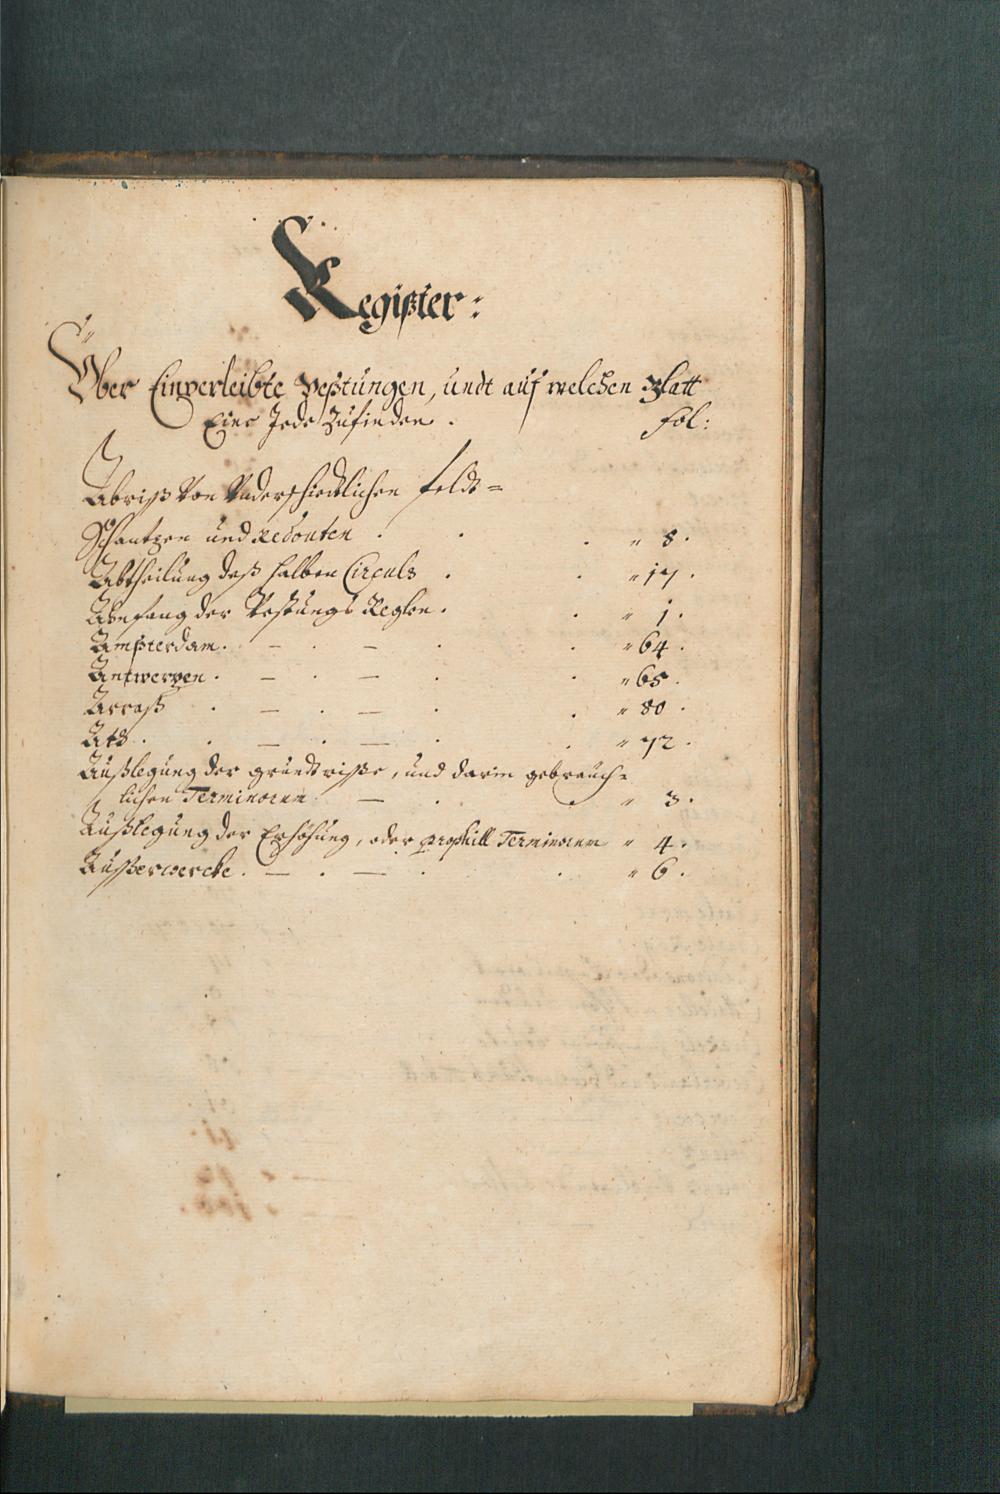 Register:
Über Einverleibte Vestungen, undt auf welchen Blatt
Eine Jede Zufinden. Fol:
Abriß Von Underschiedlichen feldt=
Schantzen und Redouten . . . " 8.
Abtheilung deß halben Circuls . . " 17.
Anfang der Vestungs Reglen. . " 1.
Amsterdam. — . — . . " 64.
Antwerpen. — . — . . " 65.
Arraß . — . — . . " 80.
Ath. . — . — . . " 72.
Außlegung der grundtrisse, und darin gebreuch=
lichen Terminorum — . . " 3.
Außlegung der Erhöhung, oder prophill Terminorum " 4.
Außerwercke. — . — . . " 6.